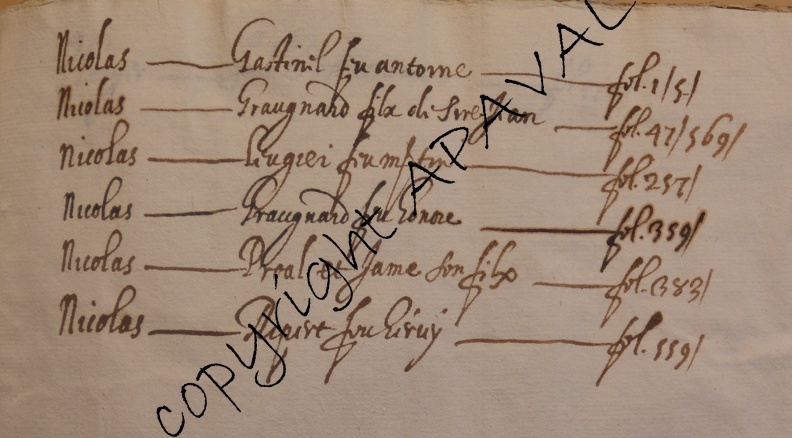 Nicolas — Gastinel feu antoine — fol. 1/5/
Nicolas — Graugnard filx de sire Jean — fol. 47/569/
Nicolas — feu — fol. 257/
Nicolas — Graugnard feu honore — fol. 359/
Nicolas — Preal et Jame son filx — fol. 383/
Nicolas — Ripert feu — fol. 559/
copyright APAVAL